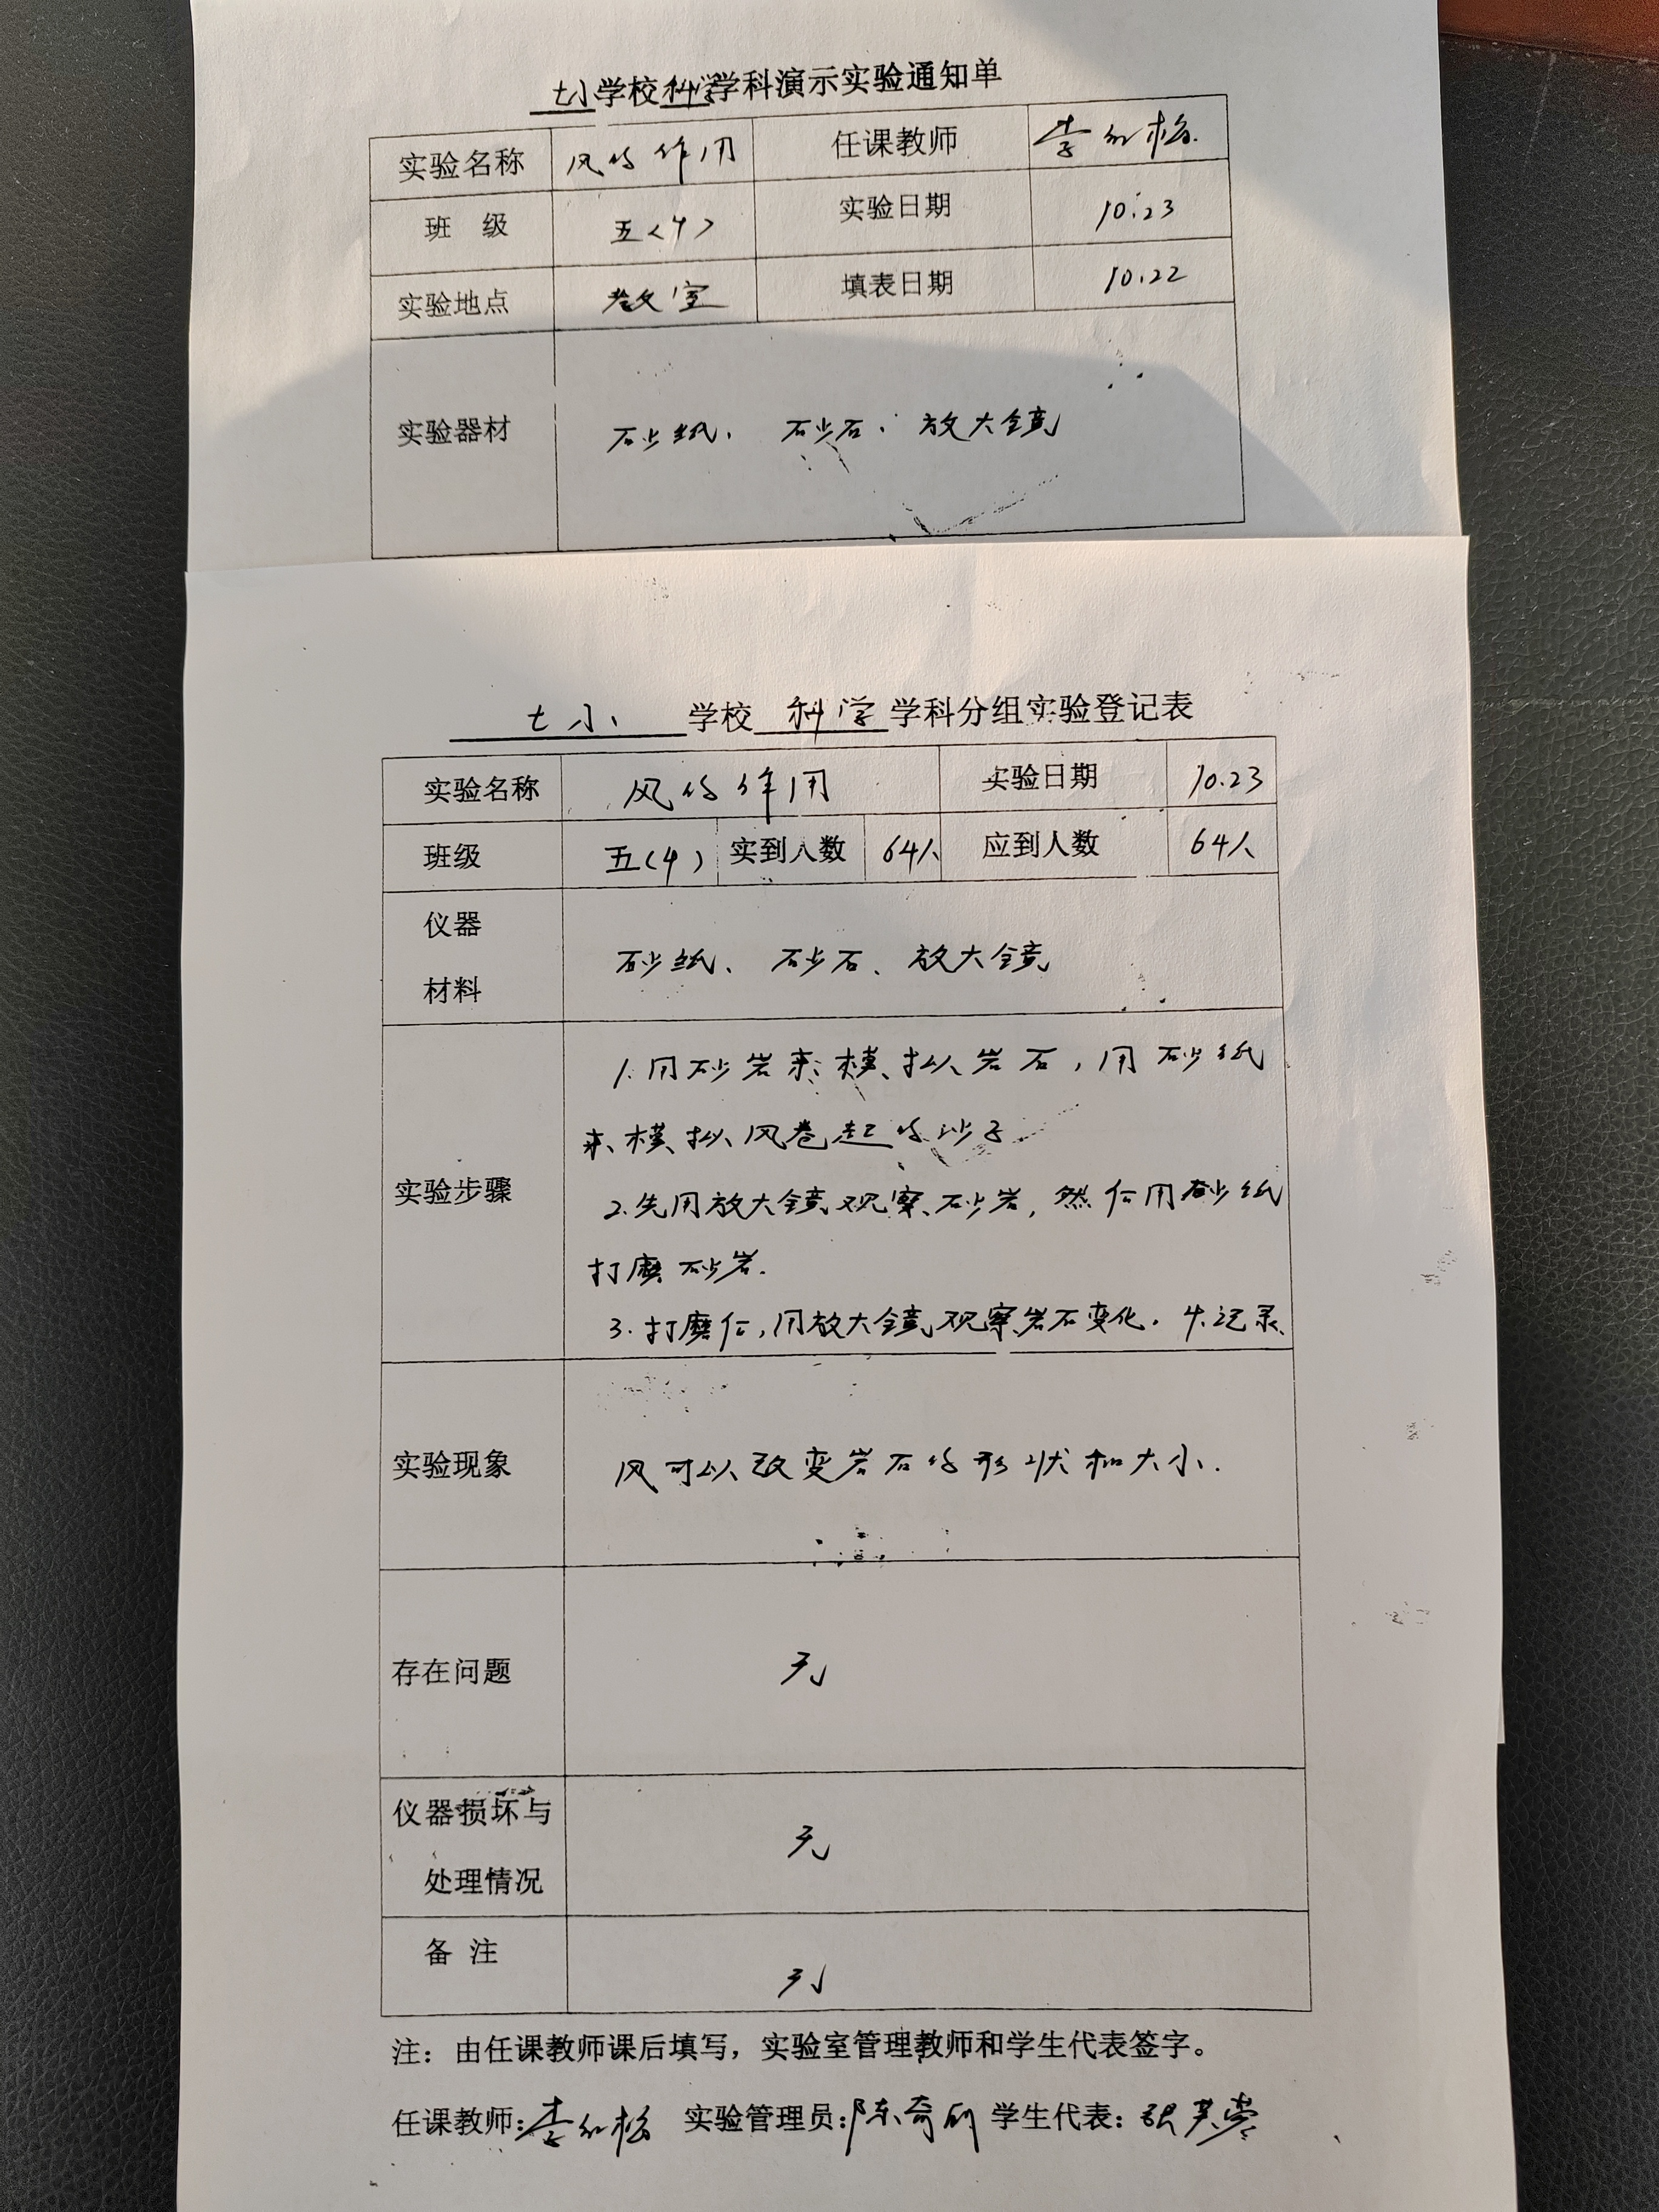 七小学校科学学科演示实验通知单
实验名称 风的作用 任课教师 李红梅
班 级 五〈4〉 实验日期 10.23
实验地点 教室 填表日期 10.22
实验器材 砂纸、砂石、放大镜
七小 学校 科学 学科分组实验登记表
实验名称 风的作用 实验日期 10.23
班级 五(4) 实到人数 64人 应到人数 64人
仪器
材料
砂纸、砂石、放大镜
实验步骤
1.用砂岩来模拟岩石,用砂纸
来模拟风卷起的沙子
2.先用放大镜观察砂岩,然后用砂纸
打磨砂岩.
3.打磨后,用放大镜观察岩石变化。4.记录
实验现象 风可以改变岩石的形状和大小.
存在问题 无
仪器损坏与
处理情况
无
备 注 无
注：由任课教师课后填写，实验室管理教师和学生代表签字。
任课教师:李红梅 实验管理员:陈奇 学生代表：张芙蓉